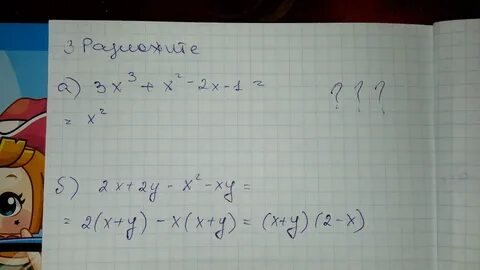 3 Разложите
а) 3x³ + x² - 2x - 1 =
= x²
? ? ?
б) 2x + 2y - x² - xy =
= 2(x+y) - x(x+y) = (x+y)(2-x)